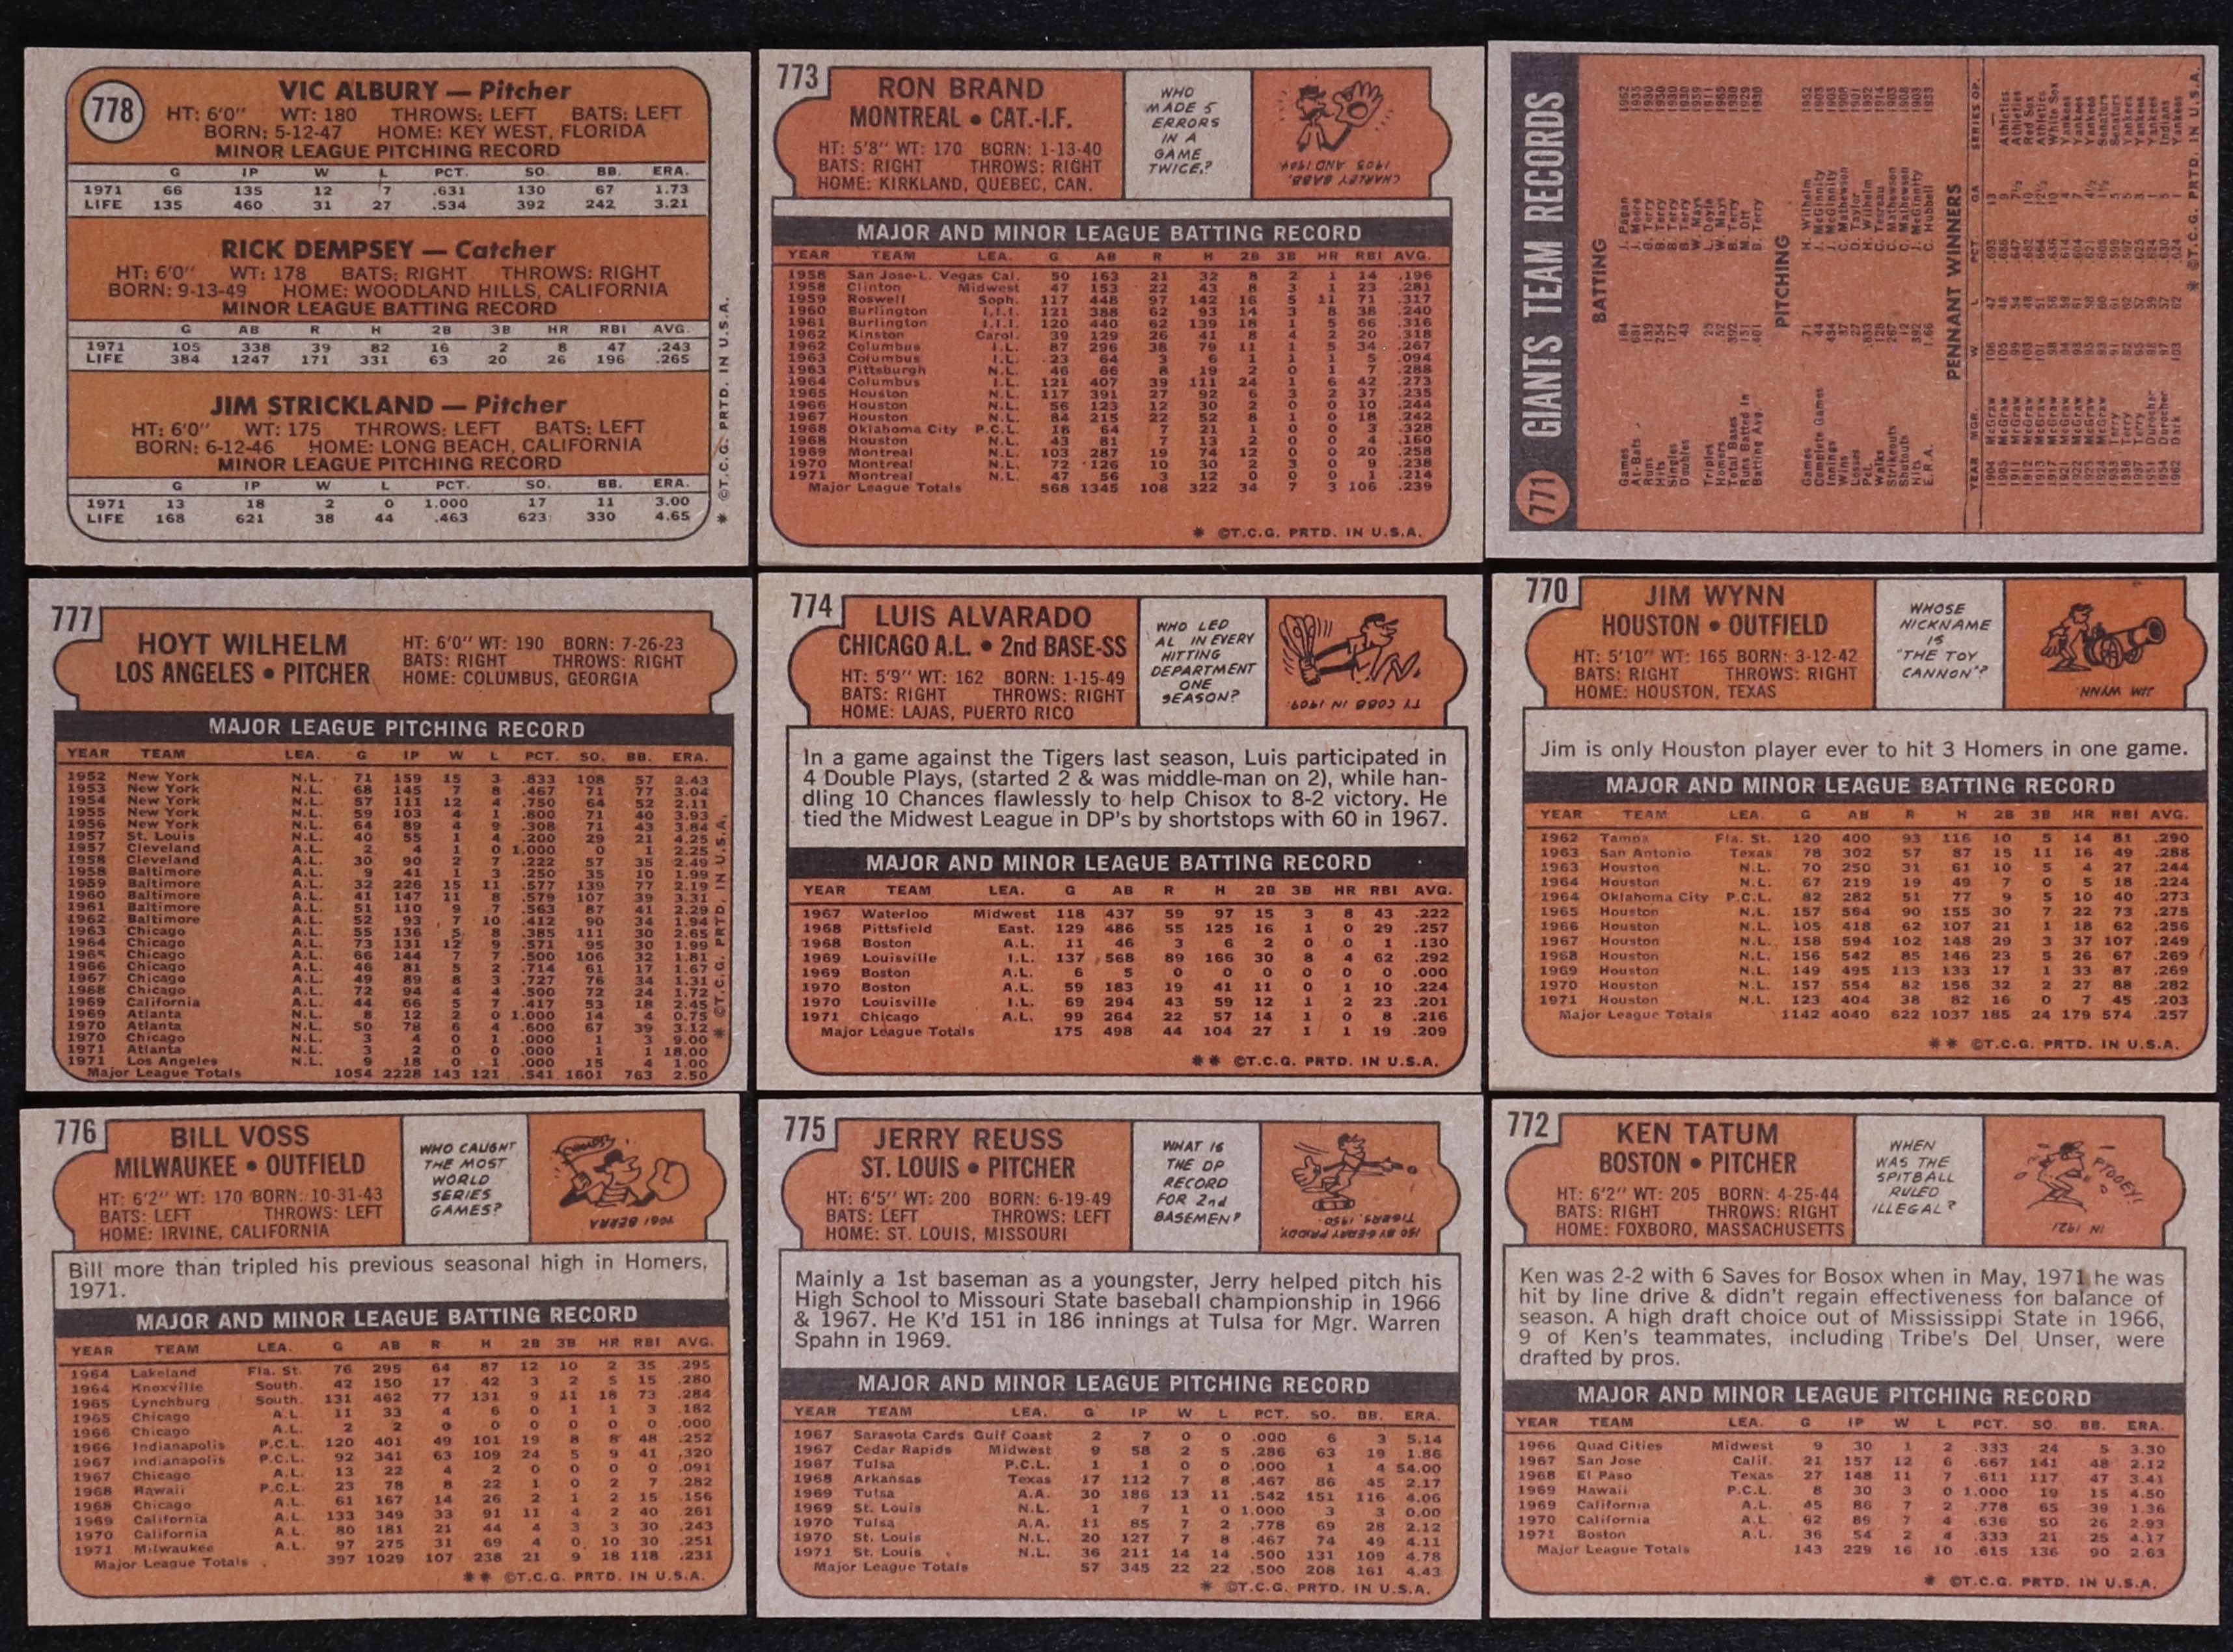 778
VIC ALBURY — Pitcher
HT: 6'0" WT: 180 THROWS: LEFT BATS: LEFT
BORN: 5-12-47 HOME: KEY WEST, FLORIDA
MINOR LEAGUE PITCHING RECORD
G IP W L PCT. SO. BB. ERA.
1971 66 135 12 7 .631 130 67 1.73
LIFE 135 460 31 27 .534 392 242 3.21
RICK DEMPSEY — Catcher
HT: 6'0" WT: 178 BATS: RIGHT THROWS: RIGHT
BORN: 9-13-49 HOME: WOODLAND HILLS, CALIFORNIA
MINOR LEAGUE BATTING RECORD
G AB R H 2B 3B HR RBI AVG.
1971 105 338 39 82 16 2 8 47 .243
LIFE 384 1247 171 331 63 20 26 196 .265
JIM STRICKLAND — Pitcher
HT: 6'0" WT: 175 THROWS: LEFT BATS: LEFT
BORN: 6-12-46 HOME: LONG BEACH, CALIFORNIA
MINOR LEAGUE PITCHING RECORD
G IP W L PCT. SO. BB. ERA.
1971 13 18 2 0 1.000 17 11 3.00
LIFE 168 621 38 44 .463 623 330 4.65
* ©T.C.G. PRTD. IN U.S.A.
773
RON BRAND
MONTREAL • CAT.-I.F.
HT: 5'8" WT: 170 BORN: 1-13-40
BATS: RIGHT THROWS: RIGHT
HOME: KIRKLAND, QUEBEC, CAN.
WHO
MADE 5
ERRORS
IN A
GAME
TWICE?
CHARLEY BABB,
1903 AND 1904
MAJOR AND MINOR LEAGUE BATTING RECORD
YEAR TEAM LEA. G AB R H 2B 3B HR RBI AVG.
1958 San Jose-L. Vegas Cal. 50 163 21 32 8 2 1 14 .196
1958 Clinton Midwest 47 153 22 43 8 3 1 23 .281
1959 Roswell Soph. 117 448 97 142 16 5 11 71 .317
1960 Burlington I.I.I. 121 388 62 93 14 3 8 38 .240
1961 Burlington I.I.I. 120 440 62 139 18 1 5 66 .316
1962 Kinston Carol. 39 129 26 41 8 4 2 20 .318
1962 Columbus I.L. 87 296 38 79 11 1 5 34 .267
1963 Columbus I.L. 23 64 3 6 1 1 1 5 .094
1963 Pittsburgh N.L. 46 66 8 19 2 0 1 7 .288
1964 Columbus I.L. 121 407 39 111 24 1 6 42 .273
1965 Houston N.L. 117 391 27 92 6 3 2 37 .235
1966 Houston N.L. 56 123 12 30 2 0 0 10 .244
1967 Houston N.L. 84 215 22 52 8 1 0 18 .242
1968 Oklahoma City P.C.L. 18 64 7 21 1 0 0 3 .328
1968 Houston N.L. 43 81 7 13 2 0 0 4 .160
1969 Montreal N.L. 103 287 19 74 12 0 0 20 .258
1970 Montreal N.L. 72 126 10 30 2 3 0 9 .238
1971 Montreal N.L. 47 56 3 12 0 0 0 1 .214
Major League Totals 568 1345 108 322 34 7 3 106 .239
* ©T.C.G. PRTD. IN U.S.A.
771 GIANTS TEAM RECORDS
BATTING
Games 164 J. Pagan 1962
At-Bats 681 J. Moore 1935
Runs 139 B. Terry 1930
Hits 254 B. Terry 1930
Singles 177 B. Terry 1930
Doubles 43 W. Mays 1959
Triples 25 L. Doyle 1911
Homers 52 W. Mays 1965
Total Bases 392 B. Terry 1930
Runs Batted In 151 M. Ott 1929
Batting Avg. .401 B. Terry 1930
PITCHING
Games 71 H. Wilhelm 1952
Complete Games 44 J. McGinnity 1903
Innings 434 J. McGinnity 1903
Wins 37 C. Mathewson 1908
Losses 27 D. Taylor 1901
Pct. .833 H. Wilhelm 1952
Walks 128 C. Tesreau 1914
Strikeouts 267 C. Mathewson 1903
Shutouts 12 C. Mathewson 1908
Hits 392 J. McGinnity 1903
E.R.A. 1.66 C. Hubbell 1933
PENNANT WINNERS
YEAR MGR. W L PCT. GA SERIES OP.
1904 McGraw 106 47 .693 13 —
1905 McGraw 105 48 .686 9 Athletics
1911 McGraw 99 54 .647 7½ Athletics
1912 McGraw 103 48 .682 10 Red Sox
1913 McGraw 101 51 .664 12½ Athletics
1917 McGraw 98 56 .636 10 White Sox
1921 McGraw 94 59 .614 4 Yankees
1922 McGraw 93 61 .604 7 Yankees
1923 McGraw 95 58 .621 4½ Yankees
1924 McGraw 93 60 .608 1½ Senators
1933 Terry 91 61 .599 5 Senators
1936 Terry 92 62 .597 5 Yankees
1937 Terry 95 57 .625 3 Yankees
1951 Durocher 98 59 .624 1 Yankees
1954 Durocher 97 57 .630 5 Indians
1962 Dark 103 62 .624 1 Yankees
* ©T.C.G. PRTD. IN U.S.A.
777
HOYT WILHELM
LOS ANGELES • PITCHER
HT: 6'0" WT: 190 BORN: 7-26-23
BATS: RIGHT THROWS: RIGHT
HOME: COLUMBUS, GEORGIA
MAJOR LEAGUE PITCHING RECORD
YEAR TEAM LEA. G IP W L PCT. SO. BB. ERA.
1952 New York N.L. 71 159 15 3 .833 108 57 2.43
1953 New York N.L. 68 145 7 8 .467 71 77 3.04
1954 New York N.L. 57 111 12 4 .750 64 52 2.11
1955 New York N.L. 59 103 4 1 .800 71 40 3.93
1956 New York N.L. 64 89 4 9 .308 71 43 3.84
1957 St. Louis N.L. 40 55 1 4 .200 29 21 4.25
1957 Cleveland A.L. 2 4 1 0 1.000 0 1 2.25
1958 Cleveland A.L. 30 90 2 7 .222 57 35 2.49
1958 Baltimore A.L. 9 41 1 3 .250 35 10 1.99
1959 Baltimore A.L. 32 226 15 11 .577 139 77 2.19
1960 Baltimore A.L. 41 147 11 8 .579 107 39 3.31
1961 Baltimore A.L. 51 110 9 7 .563 87 41 2.29
1962 Baltimore A.L. 52 93 7 10 .412 90 34 1.94
1963 Chicago A.L. 55 136 5 8 .385 111 30 2.65
1964 Chicago A.L. 73 131 12 9 .571 95 30 1.99
1965 Chicago A.L. 66 144 7 7 .500 106 32 1.81
1966 Chicago A.L. 46 81 5 2 .714 61 17 1.67
1967 Chicago A.L. 49 89 8 3 .727 76 34 1.31
1968 Chicago A.L. 72 94 4 4 .500 72 24 1.72
1969 California A.L. 44 66 5 7 .417 53 18 2.45
1969 Atlanta N.L. 8 12 2 0 1.000 14 4 0.75
1970 Atlanta N.L. 50 78 6 4 .600 67 39 3.12
1970 Chicago N.L. 3 4 0 1 .000 1 3 9.00
1971 Atlanta N.L. 3 2 0 0 .000 1 1 18.00
1971 Los Angeles N.L. 9 18 0 1 .000 15 4 1.00
Major League Totals 1054 2228 143 121 .541 1601 763 2.50
* ©T.C.G. PRTD. IN U.S.A.
774
LUIS ALVARADO
CHICAGO A.L. • 2nd BASE-SS
HT: 5'9" WT: 162 BORN: 1-15-49
BATS: RIGHT THROWS: RIGHT
HOME: LAJAS, PUERTO RICO
WHO LED
AL IN EVERY
HITTING
DEPARTMENT
ONE
SEASON?
TY COBB IN 1909.
In a game against the Tigers last season, Luis participated in
4 Double Plays, (started 2 & was middle-man on 2), while han-
dling 10 Chances flawlessly to help Chisox to 8-2 victory. He
tied the Midwest League in DP's by shortstops with 60 in 1967.
MAJOR AND MINOR LEAGUE BATTING RECORD
YEAR TEAM LEA. G AB R H 2B 3B HR RBI AVG.
1967 Waterloo Midwest 118 437 59 97 15 3 8 43 .222
1968 Pittsfield East. 129 486 55 125 16 1 0 29 .257
1968 Boston A.L. 11 46 3 6 2 0 0 1 .130
1969 Louisville I.L. 137 568 89 166 30 8 4 62 .292
1969 Boston A.L. 6 5 0 0 0 0 0 0 .000
1970 Boston A.L. 59 183 19 41 11 0 1 10 .224
1970 Louisville I.L. 69 294 43 59 12 1 2 23 .201
1971 Chicago A.L. 99 264 22 57 14 1 0 8 .216
Major League Totals 175 498 44 104 27 1 1 19 .209
** ©T.C.G. PRTD. IN U.S.A.
770
JIM WYNN
HOUSTON • OUTFIELD
HT: 5'10" WT: 165 BORN: 3-12-42
BATS: RIGHT THROWS: RIGHT
HOME: HOUSTON, TEXAS
WHOSE
NICKNAME
IS
"THE TOY
CANNON"?
JIM WYNN.
Jim is only Houston player ever to hit 3 Homers in one game.
MAJOR AND MINOR LEAGUE BATTING RECORD
YEAR TEAM LEA. G AB R H 2B 3B HR RBI AVG.
1962 Tampa Fla. St. 120 400 93 116 10 5 14 81 .290
1963 San Antonio Texas 78 302 57 87 15 11 16 49 .288
1963 Houston N.L. 70 250 31 61 10 5 4 27 .244
1964 Houston N.L. 67 219 19 49 7 0 5 18 .224
1964 Oklahoma City P.C.L. 82 282 51 77 9 5 10 40 .273
1965 Houston N.L. 157 564 90 155 30 7 22 73 .275
1966 Houston N.L. 105 418 62 107 21 1 18 62 .256
1967 Houston N.L. 158 594 102 148 29 3 37 107 .249
1968 Houston N.L. 156 542 85 146 23 5 26 67 .269
1969 Houston N.L. 149 495 113 133 17 1 33 87 .269
1970 Houston N.L. 157 554 82 156 32 2 27 88 .282
1971 Houston N.L. 123 404 38 82 16 0 7 45 .203
Major League Totals 1142 4040 622 1037 185 24 179 574 .257
** ©T.C.G. PRTD. IN U.S.A.
776
BILL VOSS
MILWAUKEE • OUTFIELD
HT: 6'2" WT: 170 BORN: 10-31-43
BATS: LEFT THROWS: LEFT
HOME: IRVINE, CALIFORNIA
WHO CAUGHT
THE MOST
WORLD
SERIES
GAMES?
YOGI BERRA
Bill more than tripled his previous seasonal high in Homers,
1971.
MAJOR AND MINOR LEAGUE BATTING RECORD
YEAR TEAM LEA. G AB R H 2B 3B HR RBI AVG.
1964 Lakeland Fla. St. 76 295 64 87 12 10 2 35 .295
1964 Knoxville South. 42 150 17 42 3 2 5 15 .280
1965 Lynchburg South. 131 462 77 131 9 11 18 73 .284
1965 Chicago A.L. 11 33 4 6 0 1 1 3 .182
1966 Chicago A.L. 2 2 0 0 0 0 0 0 .000
1966 Indianapolis P.C.L. 120 401 49 101 19 8 8 48 .252
1967 Indianapolis P.C.L. 92 341 63 109 24 5 9 41 .320
1967 Chicago A.L. 13 22 4 2 0 0 0 0 .091
1968 Hawaii P.C.L. 23 78 8 22 1 0 2 7 .282
1968 Chicago A.L. 61 167 14 26 2 1 2 15 .156
1969 California A.L. 133 349 33 91 11 4 2 40 .261
1970 California A.L. 80 181 21 44 4 3 3 30 .243
1971 Milwaukee A.L. 97 275 31 69 4 0 10 30 .251
Major League Totals 397 1029 107 238 21 9 18 118 .231
** ©T.C.G. PRTD. IN U.S.A.
775
JERRY REUSS
ST. LOUIS • PITCHER
HT: 6'5" WT: 200 BORN: 6-19-49
BATS: LEFT THROWS: LEFT
HOME: ST. LOUIS, MISSOURI
WHAT IS
THE DP
RECORD
FOR 2nd
BASEMEN?
150 BY GERRY PRIDDY,
TIGERS, 1950.
Mainly a 1st baseman as a youngster, Jerry helped pitch his
High School to Missouri State baseball championship in 1966
& 1967. He K'd 151 in 186 innings at Tulsa for Mgr. Warren
Spahn in 1969.
MAJOR AND MINOR LEAGUE PITCHING RECORD
YEAR TEAM LEA. G IP W L PCT. SO. BB. ERA.
1967 Sarasota Cards Gulf Coast 2 7 0 0 .000 6 3 5.14
1967 Cedar Rapids Midwest 9 58 2 5 .286 63 19 1.86
1967 Tulsa P.C.L. 1 1 0 0 .000 1 4 54.00
1968 Arkansas Texas 17 112 7 8 .467 86 45 2.17
1969 Tulsa A.A. 30 186 13 11 .542 151 116 4.06
1969 St. Louis N.L. 1 7 1 0 1.000 3 3 0.00
1970 Tulsa A.A. 11 85 7 2 .778 69 28 2.12
1970 St. Louis N.L. 20 127 7 8 .467 74 49 4.11
1971 St. Louis N.L. 36 211 14 14 .500 131 109 4.78
Major League Totals 57 345 22 22 .500 208 161 4.43
* ©T.C.G. PRTD. IN U.S.A.
772
KEN TATUM
BOSTON • PITCHER
HT: 6'2" WT: 205 BORN: 4-25-44
BATS: RIGHT THROWS: RIGHT
HOME: FOXBORO, MASSACHUSETTS
WHEN
WAS THE
SPITBALL
RULED
ILLEGAL?
PTOOEY!
IN 1921
Ken was 2-2 with 6 Saves for Bosox when in May, 1971 he was
hit by line drive & didn't regain effectiveness for balance of
season. A high draft choice out of Mississippi State in 1966,
9 of Ken's teammates, including Tribe's Del Unser, were
drafted by pros.
MAJOR AND MINOR LEAGUE PITCHING RECORD
YEAR TEAM LEA. G IP W L PCT. SO. BB. ERA.
1966 Quad Cities Midwest 9 30 1 2 .333 24 5 3.30
1967 San Jose Calif. 21 157 12 6 .667 141 48 2.12
1968 El Paso Texas 27 148 11 7 .611 117 47 3.41
1969 Hawaii P.C.L. 8 30 3 0 1.000 19 15 4.50
1969 California A.L. 45 86 7 2 .778 65 39 1.36
1970 California A.L. 62 89 7 4 .636 50 26 2.93
1971 Boston A.L. 36 54 2 4 .333 21 25 4.17
Major League Totals 143 229 16 10 .615 136 90 2.63
* ©T.C.G. PRTD. IN U.S.A.